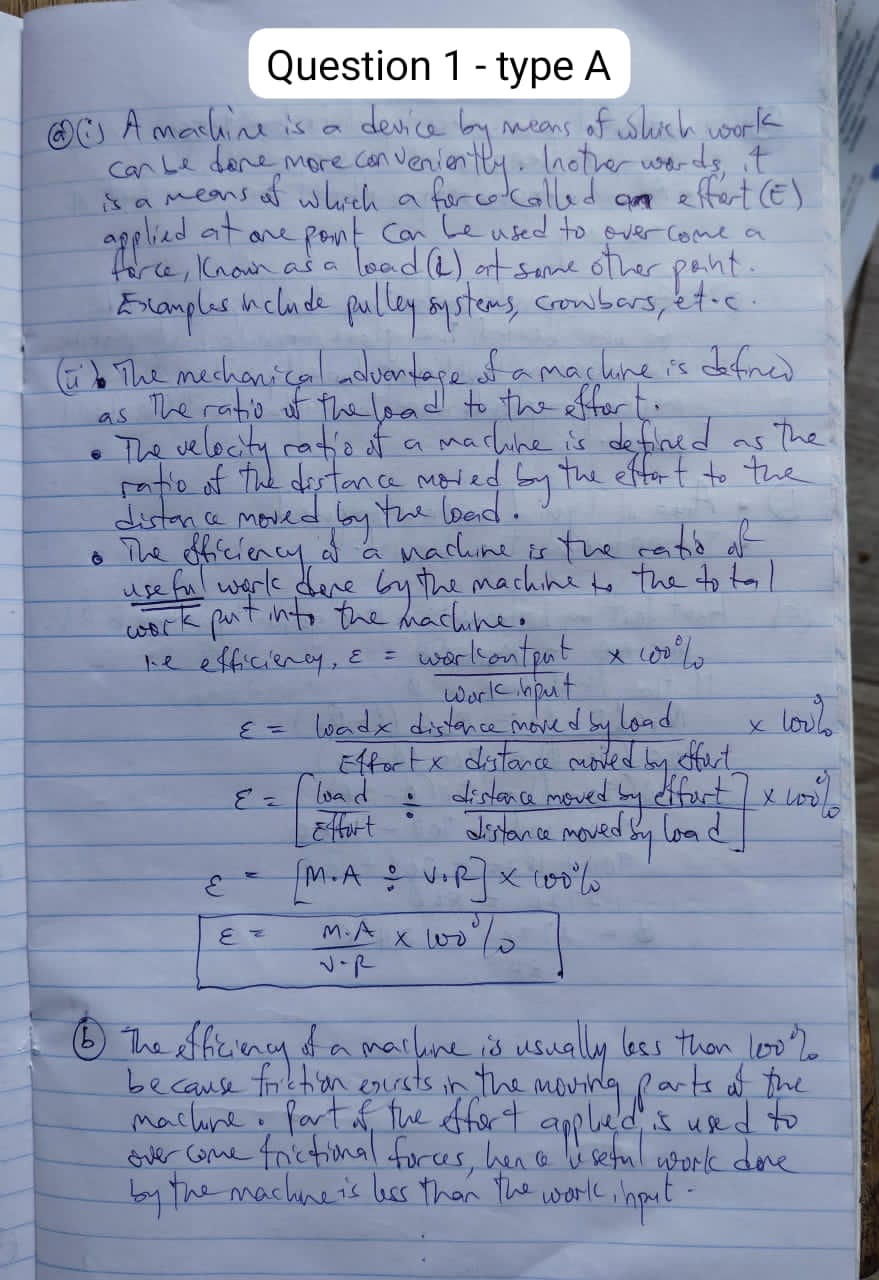 Question 1 - type A
(a)(i) A machine is a device by means of which work
can be done more conveniently. In other words, it
is a means of which a force called an effort (E)
applied at one point can be used to overcome a
force, known as a load (L) at some other point.
Examples include pulley systems, crowbars, et.c.
(ii) • The mechanical advantage of a machine is defined
as the ratio of the load to the effort.
• The velocity ratio of a machine is defined as the
ratio of the distance moved by the effort to the
distance moved by the load.
• The efficiency of a machine is the ratio of
useful work done by the machine to the total
work put into the machine.
i.e efficiency, ε = work output / work input × 100%
ε = load × distance moved by load / Effort × distance moved by effort × 100%
ε = [load / Effort ÷ distance moved by effort / distance moved by load] × 100%
ε = [M.A ÷ V.R] × 100%
ε = M.A / V.R × 100%
(b) The efficiency of a machine is usually less than 100%
because friction exists in the moving parts of the
machine. Part of the effort applied is used to
overcome frictional forces, hence useful work done
by the machine is less than the work input.